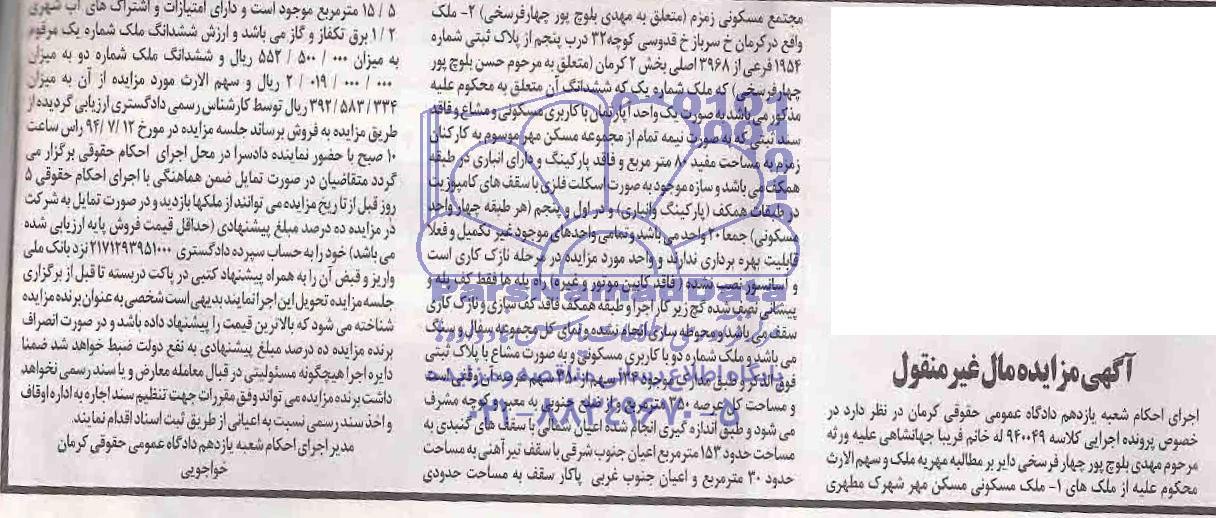 آگهی مزایده مال غیر منقول
اجرای احکام شعبه یازدهم دادگاه عمومی حقوقی کرمان در نظر دارد در
خصوص پرونده اجرایی کلاسه ۹۴۰۰۴۹ له خانم فریبا جهانشاهی علیه ورثه
مرحوم مهدی بلوچ پور چهار فرسخی دایر بر مطالبه مهریه ملک و سهم الارث
محکوم علیه از ملک های ۱- ملک مسکونی مسکن مهر شهرک مطهری
مجتمع مسکونی زمزم (متعلق به مهدی بلوچ پور چهارفرسخی) ۲- ملک
واقع در کرمان خ سرباز خ قدوسی کوچه ۳۲ درب پنجم از پلاک ثبتی شماره
۱۹۵۴ فرعی از ۳۹۶۸ اصلی بخش ۲ کرمان (متعلق به مرحوم حسن بلوچ پور
چهارفرسخی) که ملک شماره یک که ششدانگ آن متعلق به محکوم علیه
مذکور می باشد به صورت یک واحد آپارتمان با کاربری مسکونی و مشاع و فاقد
سند ثبتی که به صورت نیمه تمام از مجموعه مسکن مهر موسوم به کارکنان
زمزم به مساحت مفید ۸۰ متر مربع و فاقد پارکینگ و دارای انباری در طبقه
همکف می باشد و سازه موجود به صورت اسکلت فلزی با سقف های کامپوزیت
در طبقات همکف (پارکینگ وانباری) و در اول و پنجم (هر طبقه چهار واحد
مسکونی) جمعا ۲۰ واحد می باشد و تمامی واحدهای موجود غیر تکمیل و فعلا
قابلیت بهره برداری ندارند و واحد مورد مزایده در مرحله نازک کاری است
و آسانسور نصب نشده ( فاقد کابین موتور و غیره) راه پله ها فقط کف پله و
پیشانی نصب شده گچ زیر کار اجرا و طبقه همکف فاقد کف سازی و نازک کاری
سقف می باشد و محوطه سازی انجام نشده و نمای کل مجموعه سفال و سنگ
می باشد و ملک شماره دو با کاربری مسکونی و به صورت مشاع با پلاک ثبتی
فوق الذکر و طبق مدارک موجود ۱۲۴ سهم از ۳۵۰ سهم عرصه آن وقفی است
و مساحت کل عرصه ۳۵۰ مترمربع و از ضلع جنوبی به معبر و کوچه مشرف
می شود و طبق اندازه گیری انجام شده اعیان شمالی با سقف های گنبدی به
مساحت حدود ۱۵۳ مترمربع اعیان جنوب شرقی با سقف تیرآهنی به مساحت
حدود ۳۰ مترمربع و اعیان جنوب غربی پاکار سقف به مساحت حدودی
۱۵ / ۵ مترمربع موجود است و دارای امتیازات و اشتراک های آب شهری
۱ / ۲ برق تکفاز و گاز می باشد و ارزش ششدانگ ملک شماره یک مرقوم
به میزان ۰۰۰ / ۵۰۰ / ۵۵۲ ریال و ششدانگ ملک شماره دو به میزان
۰۰۰ / ۰۰۰ / ۰۱۹ / ۲ ریال و سهم الارث مورد مزایده از آن به میزان
۳۹۲ / ۵۸۳ / ۳۳۴ ریال توسط کارشناس رسمی دادگستری ارزیابی گردیده از
طریق مزایده به فروش برساند جلسه مزایده در مورخ ۹۴/۷/۱۲ راس ساعت
۱۰ صبح با حضور نماینده دادسرا در محل اجرای احکام حقوقی برگزار می
گردد متقاضیان در صورت تمایل ضمن هماهنگی با اجرای احکام حقوقی ۵
روز قبل از تاریخ مزایده می توانند از ملکها بازدید و در صورت تمایل به شرکت
در مزایده ده درصد مبلغ پیشنهادی (حداقل قیمت فروش پایه ارزیابی شده
می باشد) خود را به حساب سپرده دادگستری ۲۱۷۱۲۹۳۹۵۱۰۰۰ نزد بانک ملی
واریز و قبض آن را به همراه پیشنهاد کتبی در پاکت دربسته تا قبل از برگزاری
جلسه مزایده تحویل این اجرا نمایند بدیهی است شخصی به عنوان برنده مزایده
شناخته می شود که بالاترین قیمت را پیشنهاد داده باشد و در صورت انصراف
برنده مزایده ده درصد مبلغ پیشنهادی به نفع دولت ضبط خواهد شد ضمنا
دایره اجرا هیچگونه مسئولیتی در قبال معامله معارض و یا سند رسمی نخواهد
داشت برنده مزایده می تواند وفق مقررات جهت تنظیم سند اجاره به اداره اوقاف
و اخذ سند رسمی نسبت به اعیانی از طریق ثبت اسناد اقدام نمایند.
مدیر اجرای احکام شعبه یازدهم دادگاه عمومی حقوقی کرمان
خواجویی
ParsNamadData
۰۲۱-۸۸۳۴۹۶۷۰-۵